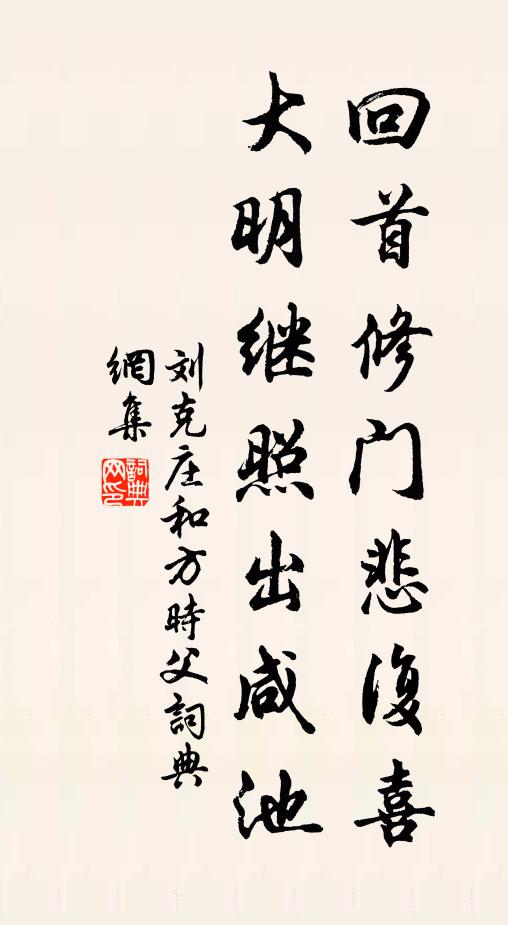 回首修门悲復喜
大明继照出咸池
刘克庄和方時父詞典
網集
詞典網印